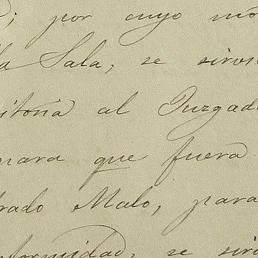 ; por cuyo mo
la Sala, se sirvi
itoria al Juzgad
para que fuera
rado Malo, para
formidad, se sir